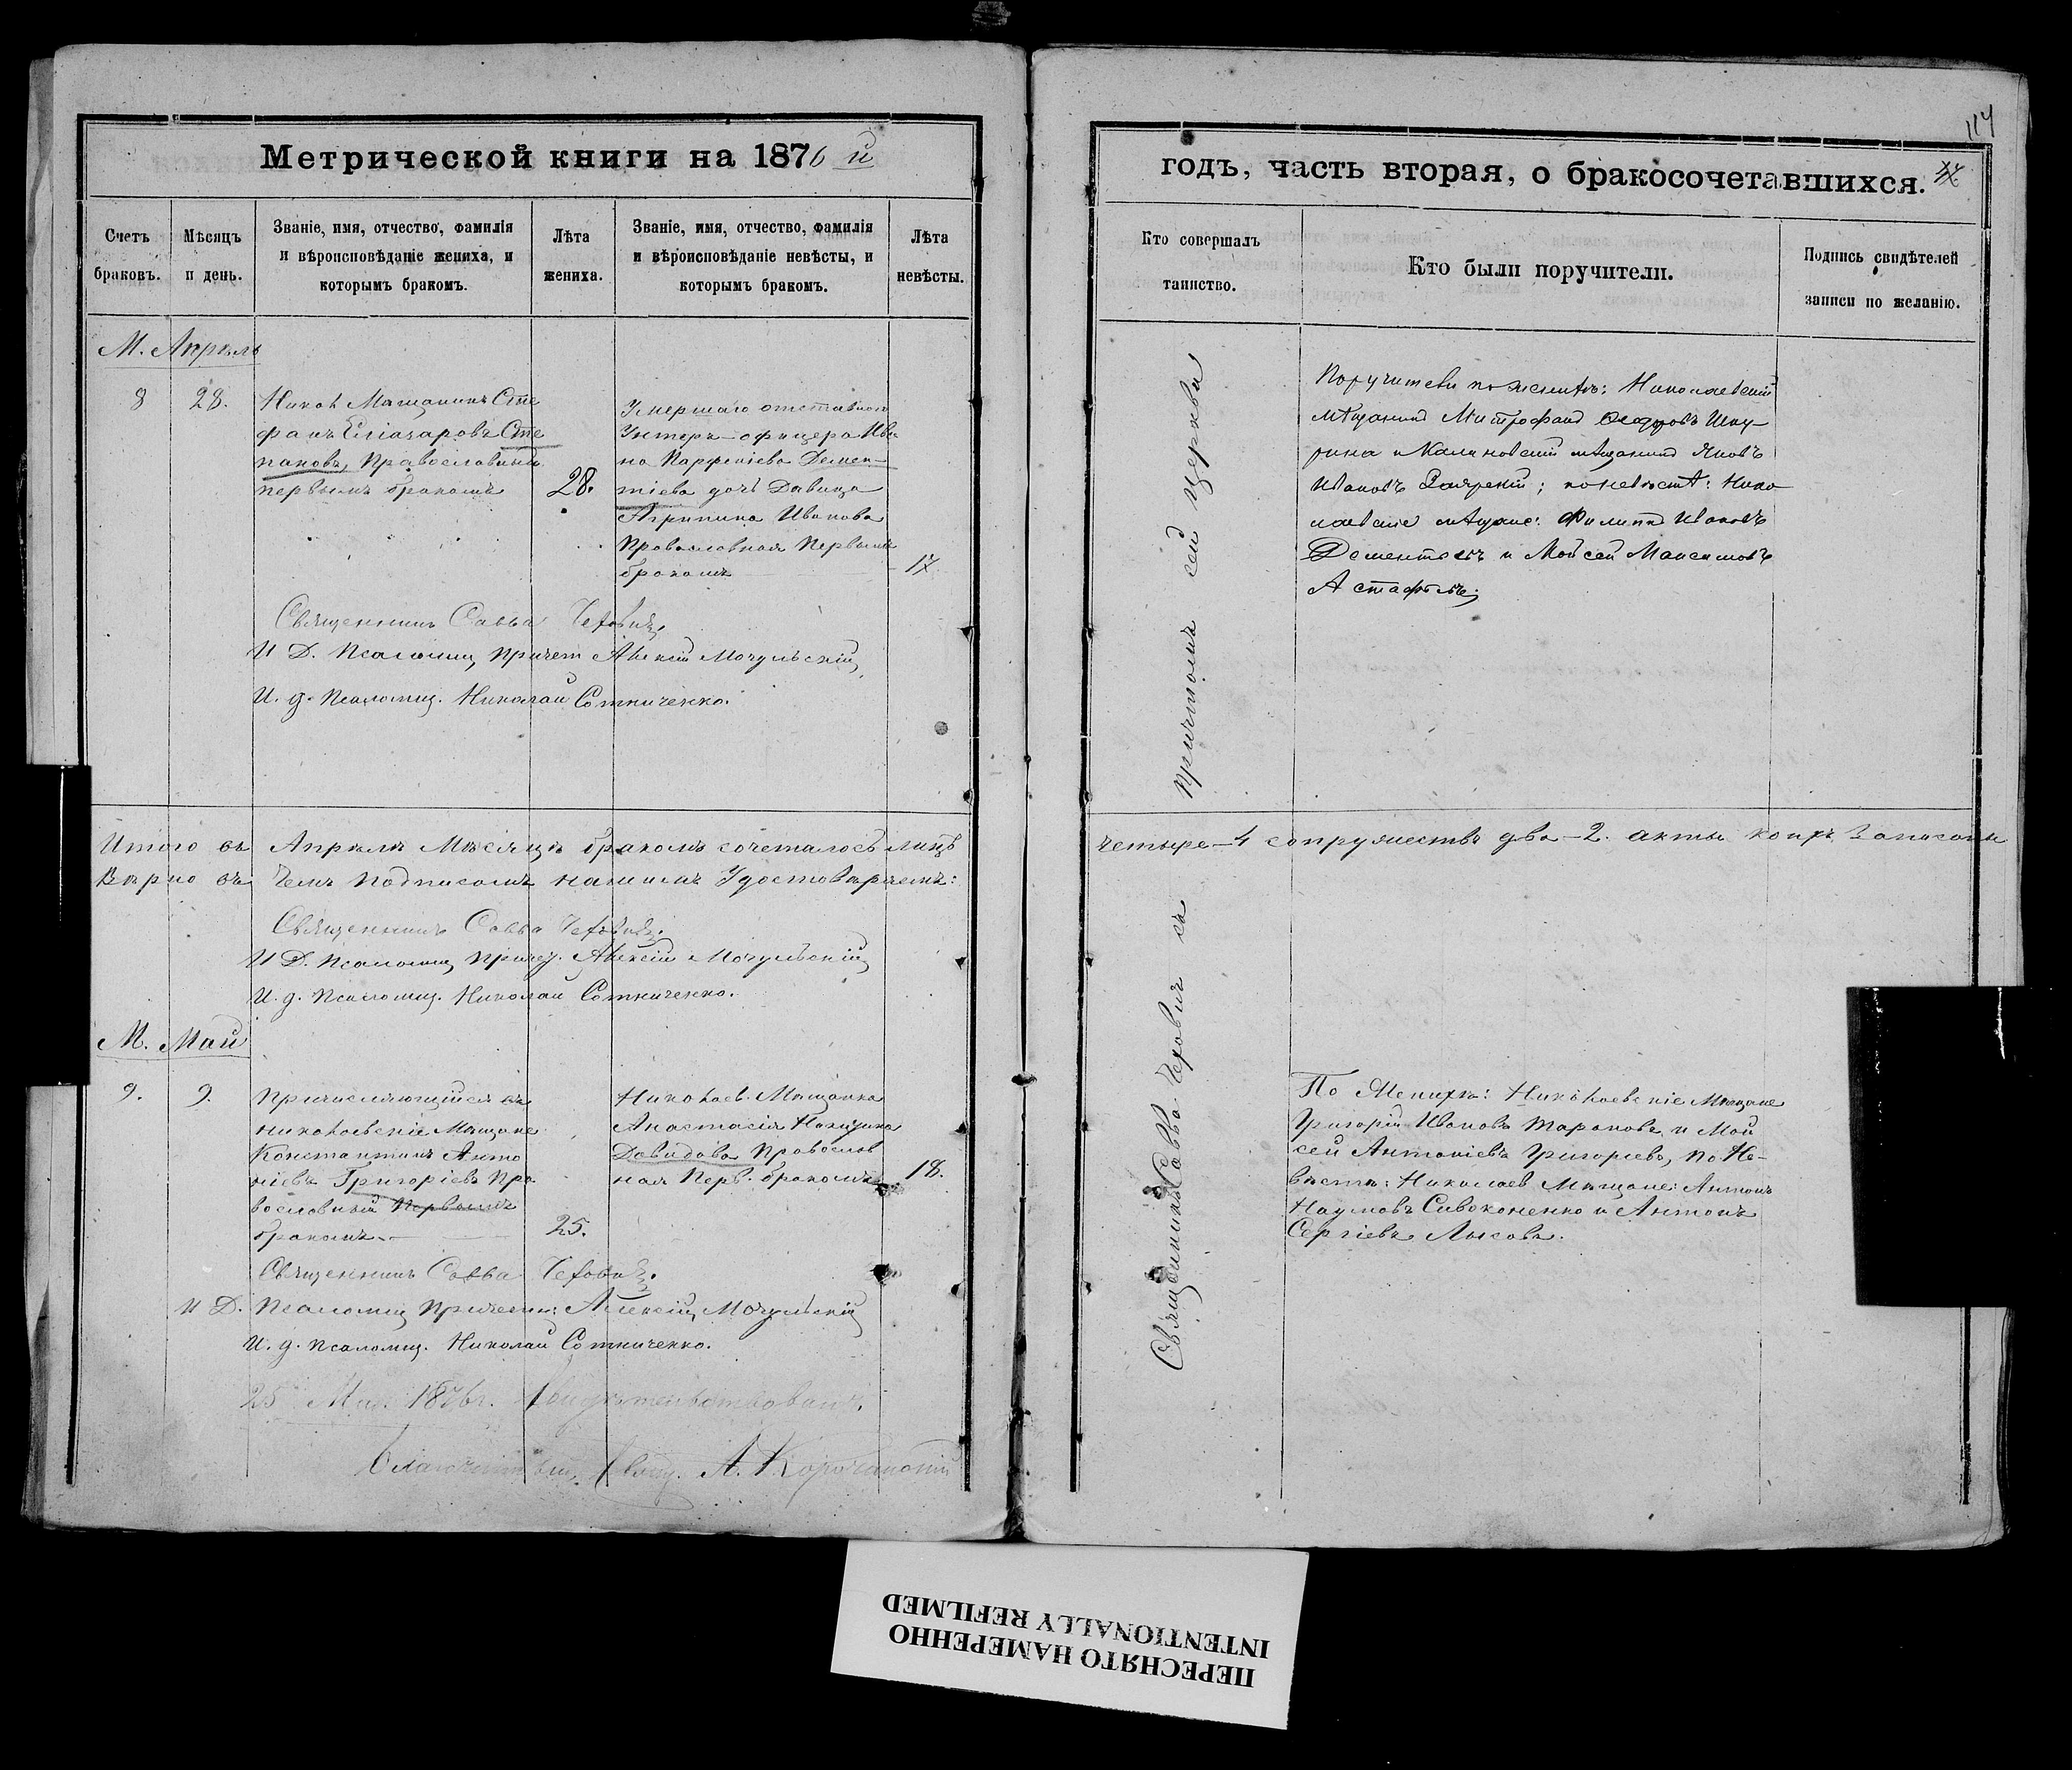 Метрической книги на 1876 й
Счетъ браковъ.
Мѣсяцъ и день.
Званіе, имя, отчество, фамилія и вѣроисповѣданіе жениха, и которымъ бракомъ.
Лѣта жениха.
Званіе, имя, отчество, фамилія и вѣроисповѣданіе невѣсты, и которымъ бракомъ.
Лѣта невѣсты.
М. Апрѣль
8
28.
Никол Мѣщанинъ Сте
фанъ Еліазаровъ Сте
пановъ, Православный
первымъ бракомъ
28.
Умершаго отставного
Унтеръ-офицера Ива
на Парфеніева Демен-
тіева дочь Давица
Агрипина Иванова
Православная Первымъ
бракомъ
17
Священникъ Савва Чехович
И Д. Псаломщ Причет Алексій Мочульскій
И. д. Псаломщ. Николай Сотниченко.
Итого въ Апрѣлѣ Мѣсяцѣ бракомъ сочеталось лицъ
Вѣрно въ Чемъ Подписомъ нашимъ Удостовѣряемъ:
Священникъ Савва Чехович
И Д. Псаломщ Причет. Алексій Мочульскій
И. д. Псаломщ. Николай Сотниченко.
М. Май
9.
9.
Причисляющійся въ
николаевскіе Мѣщане
Константинъ Анто
ніевъ Григоріевъ Пра
вославный Первымъ
бракомъ
25.
Николаев. Мѣщанка
Анастасія
Давидова Православ
ная Перв. бракомъ
18.
Священникъ Савва Чехович.
И Д. Псаломщ Причетн: Алексій Мочульскій
И. д. псаломщ. Николай Сотниченко.
25 Мая 1876 г. Свидѣтельствовалъ,
Благочинный Свящ. А.
114
годъ, часть вторая, о бракосочетавшихся.
Кто совершалъ таинство.
Кто были поручители.
Подпись свидѣтелей записи по желанію.
Священникъ Савва Чехович съ причтомъ сей церкви
Поручители по женихѣ: Николаевскій
мѣщанинъ Митрофанъ Ѳедоровъ Шку-
рина и Калиновскій мѣщанинъ Яковъ
Ивановъ; по невѣстѣ: Нико
лаевскіе мѣщане: Филипъ Ивановъ
Дементьевъ и Мойсей Максимовъ
Астафьевъ;
четыре-4 супружествъ два-2. акты коихъ Записаны
По Женихѣ: Николаевскіе Мѣщане
Григорій Ивановъ Тарановъ и Мой
сей Антоніевъ Григоріевъ, по Не-
вѣстѣ: Николаев Мѣщане: Антонъ
Наумовъ Сивоконенко и Антонъ
Сергіевъ Лысовъ.
ПЕРЕСНЯТО НАМЕРЕННО
INTENTIONALLY REFILMED